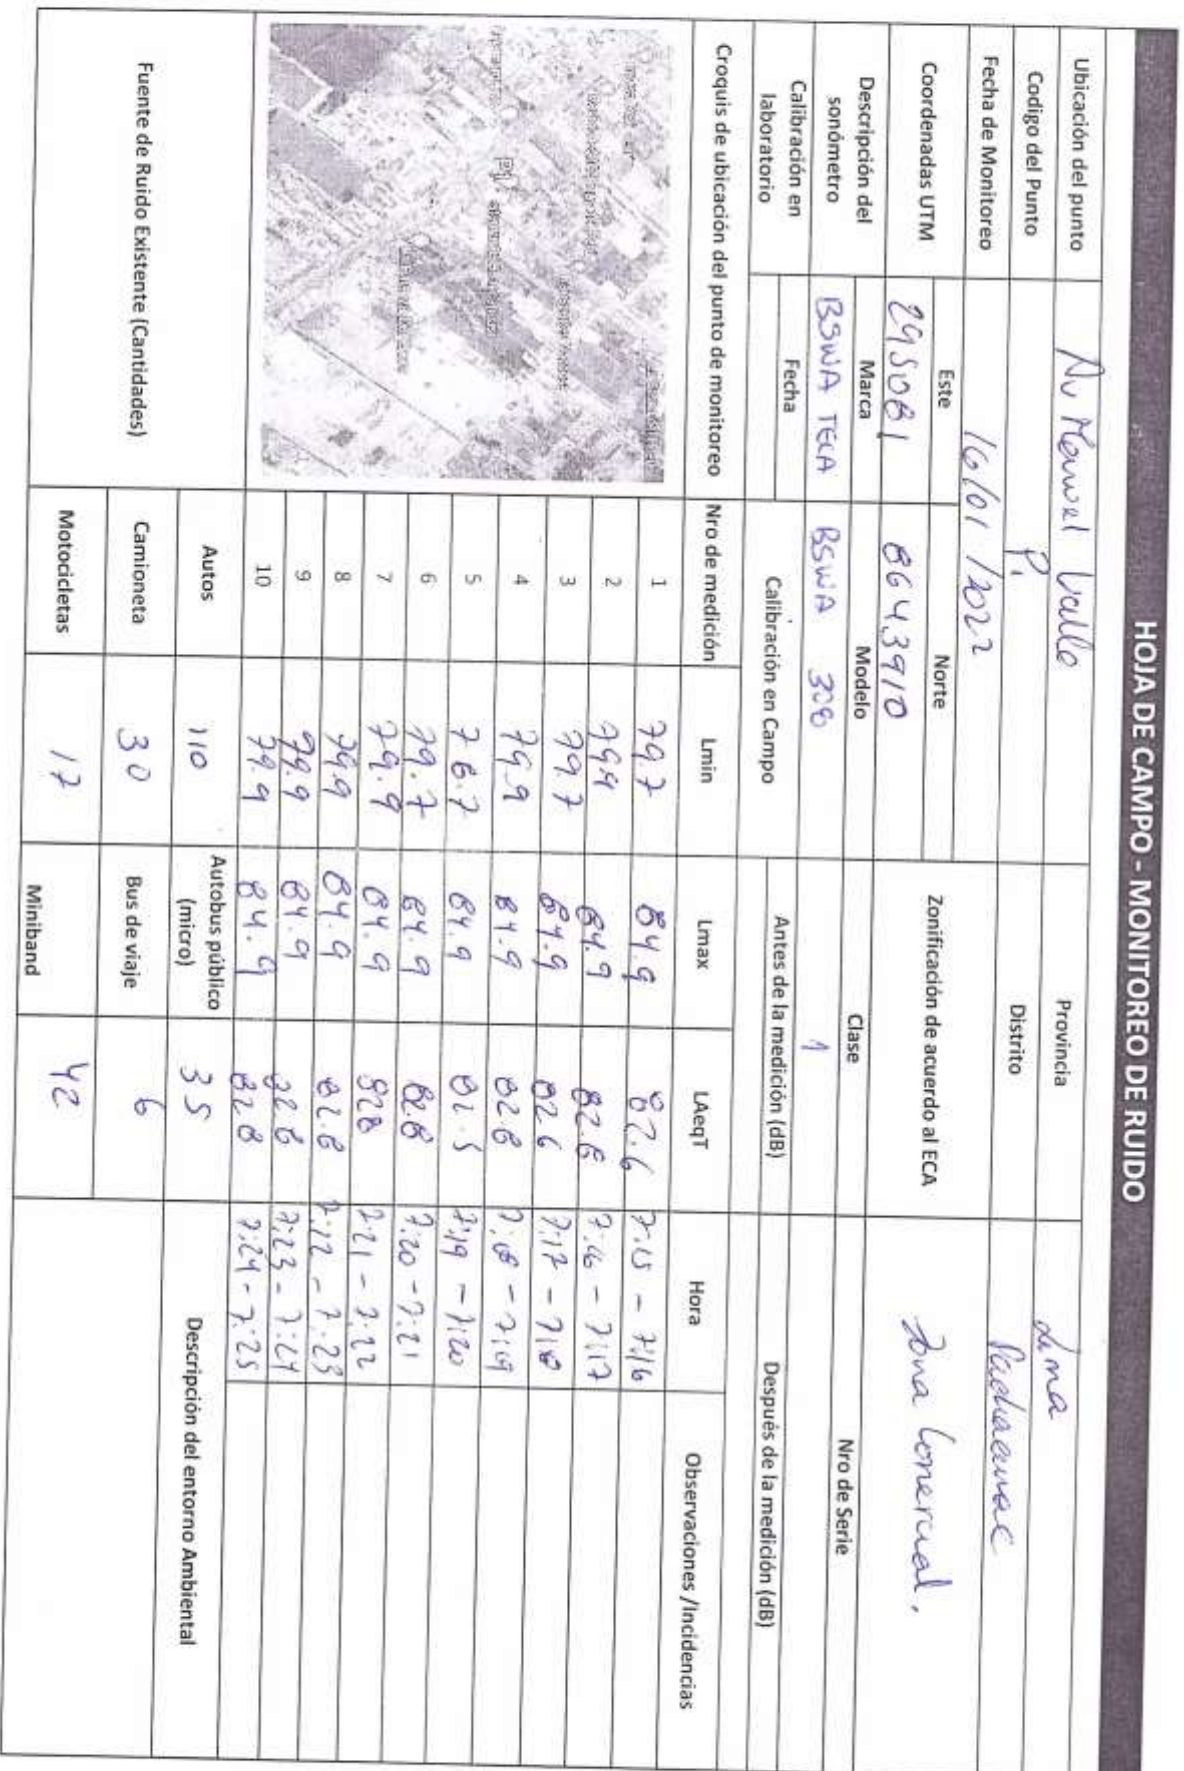 HOJA DE CAMPO - MONITOREO DE RUIDO
Ubicación del punto Av Manuel Valle Provincia Lima
Codigo del Punto P1 Distrito Pachacamac
Fecha de Monitoreo 16/01/2022
Coordenadas UTM Este Norte Zonificación de acuerdo al ECA Zona Comercial.
295081 8643910
Descripción del sonómetro Marca Modelo Clase Nro de Serie
BSWA TECA BSWA 308 1
Calibración en laboratorio Fecha Calibración en Campo Antes de la medición (dB) Después de la medición (dB)
Croquis de ubicación del punto de monitoreo Nro de medición Lmin Lmax LAeqT Hora Observaciones /Incidencias
1 79.7 84.9 82.6 7:15 - 7:16
2 79.9 84.9 82.8 7:16 - 7:17
3 79.7 84.9 82.6 7:17 - 7:18
4 79.9 84.9 82.8 7:18 - 7:19
5 76.7 84.9 82.5 7:19 - 7:20
6 79.7 84.9 828 7:20 - 7:21
7 79.9 84.9 828 7:21 - 7:22
8 79.9 84.9 82.8 7:22 - 7:23
9 79.9 84.9 828 7:23 - 7:24
10 79.9 84.9 828 7:24 - 7:25
Fuente de Ruido Existente (Cantidades) Autos 110 Autobus público (micro) 35 Descripción del entorno Ambiental
Camioneta 30 Bus de viaje 6
Motocicletas 17 Miniband 42